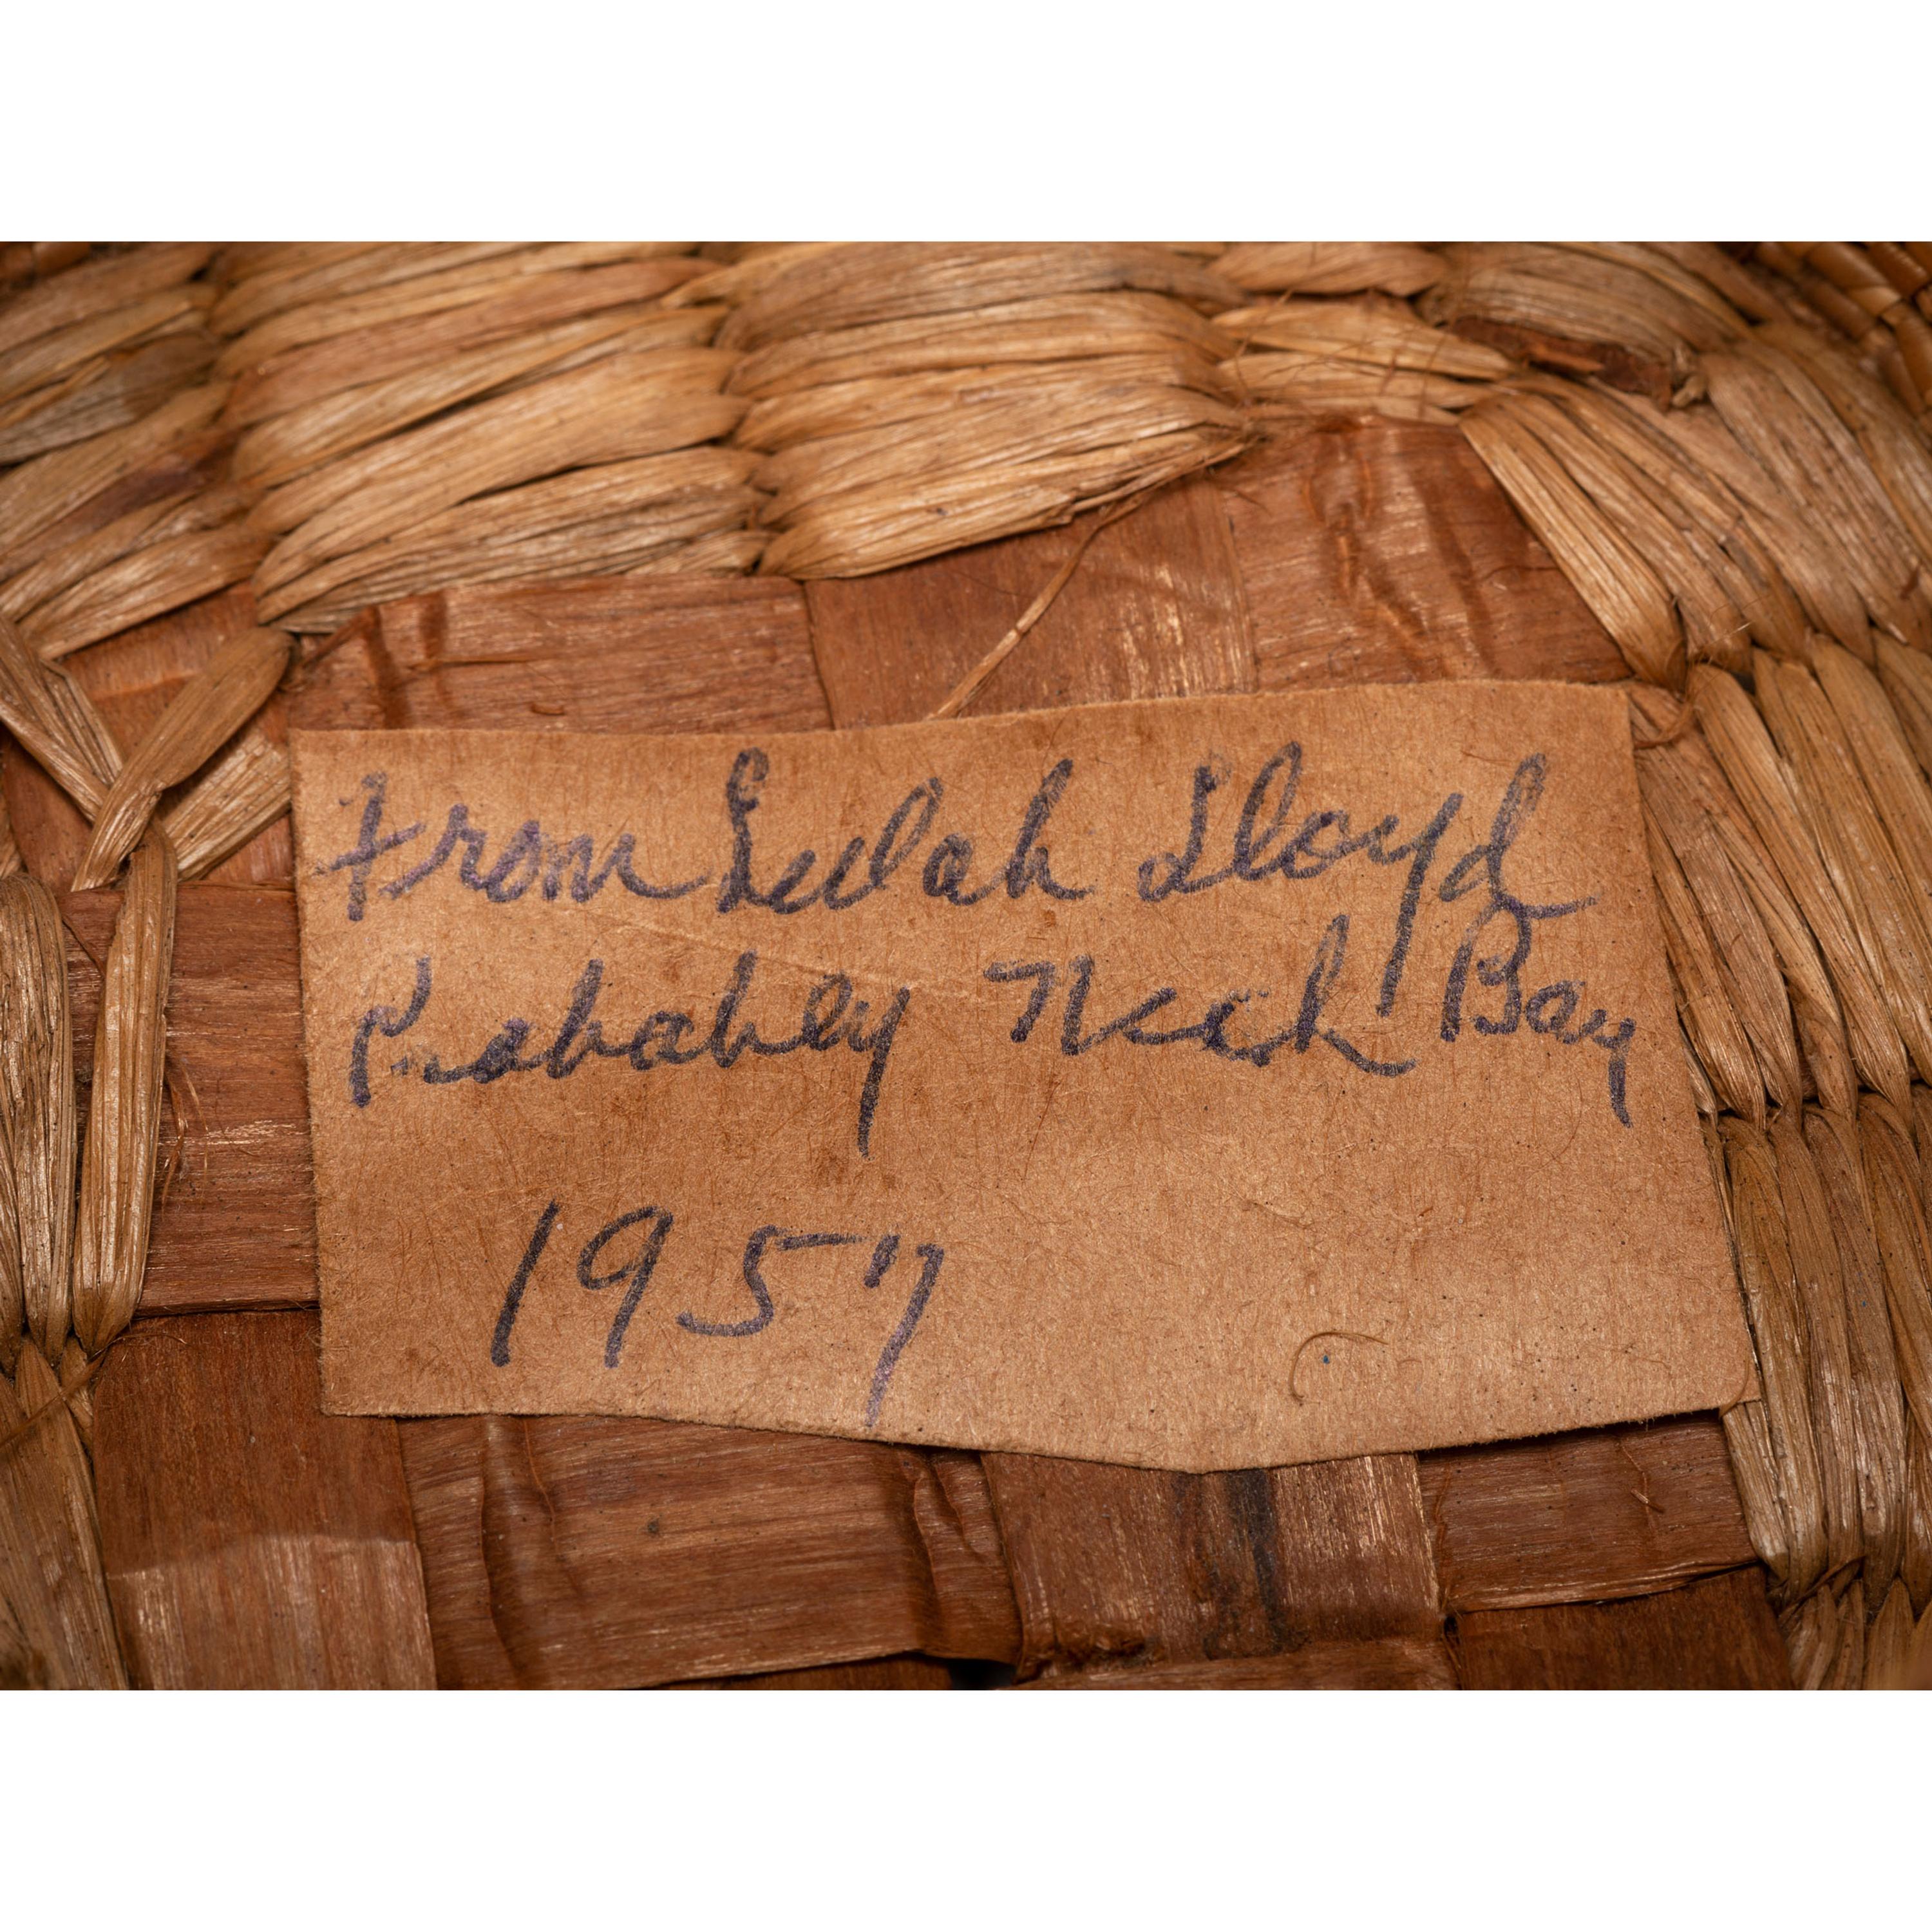 From Lulah Lloyd
Probably Neah Bay
1957